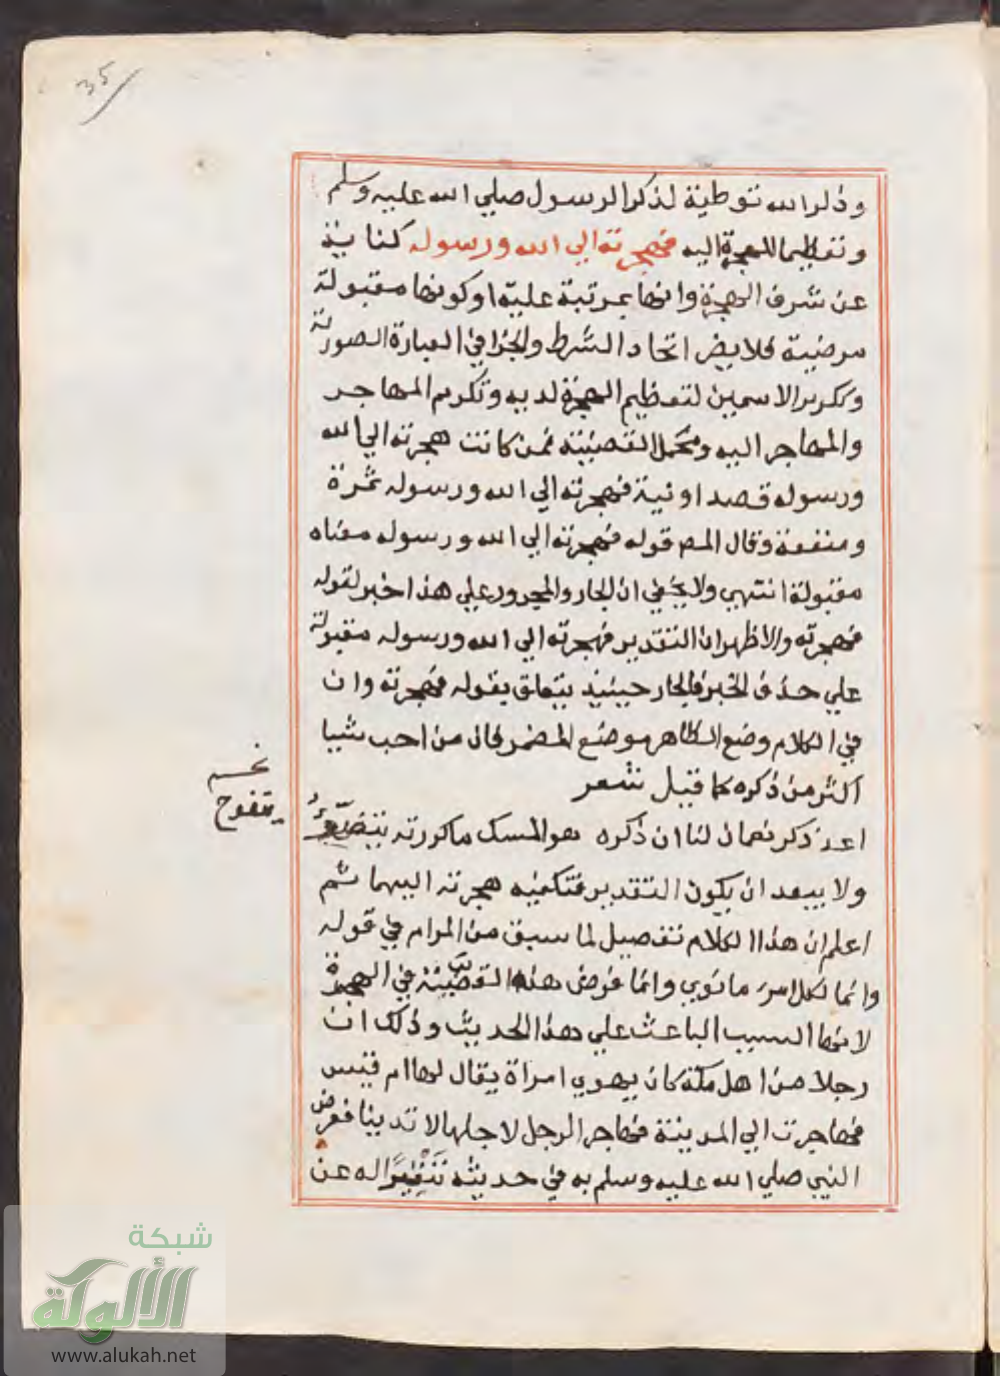 35
وذكر الله توطية لذكر الرسول صلي الله عليه وسلم
وتعظيما للهجرة اليه فهجرته الي الله ورسوله كناية
عن شرف الهجرة وانها بمرتبة علية او كونها مقبولة
مرضية فلا يضر اتحاد الشرط والجزا في العبارة الصورية
وتكرير الاسمين لتعظيم الهجرة لديه وتكريم المهاجر
والمهاجر اليه ومحمل القضية فمن كانت هجرته الي الله
ورسوله قصدا ونية فهجرته الي الله ورسوله ثمرة
ومنفعة وقال المص قوله فهجرته الي الله ورسوله معناه
مقبولة انتهي ولا يخفي ان الجار والمجرور علي هذا خبر لقوله
فهجرته والاظهر ان التقدير فهجرته الي الله ورسوله مقبولة
علي حذف الخبر فالجار حينيذ يتعلق بقوله فهجرته وان
في الكلام وضع الظاهر موضع المضمر فان من احب شيا
اكثر من ذكره كما قيل شعر
اعد ذكر نعمان لنا ان ذكره هو المسك ما كررته يتضوع
نخسه
يتفوح
ولا يبعد ان يكون التقدير فتكفيه هجرته اليهما ثم
اعلم ان هذا الكلام تفصيل لما سبق من المرام في قوله
وانما لكل امرء ما نوي وانما فرض هذه القضية في الهجرة
لانها السبب الباعث علي هذا الحديث وذلك ان
رجلا من اهل مكة كان يهوي امراة يقال لها ام قيس
فهاجرت الي المدينة فهاجر الرجل لاجلها لا تدينا فعرض
النبي صلي الله عليه وسلم به في حديثه تنفيرا له عن
شبكة
الألوكة
www.alukah.net